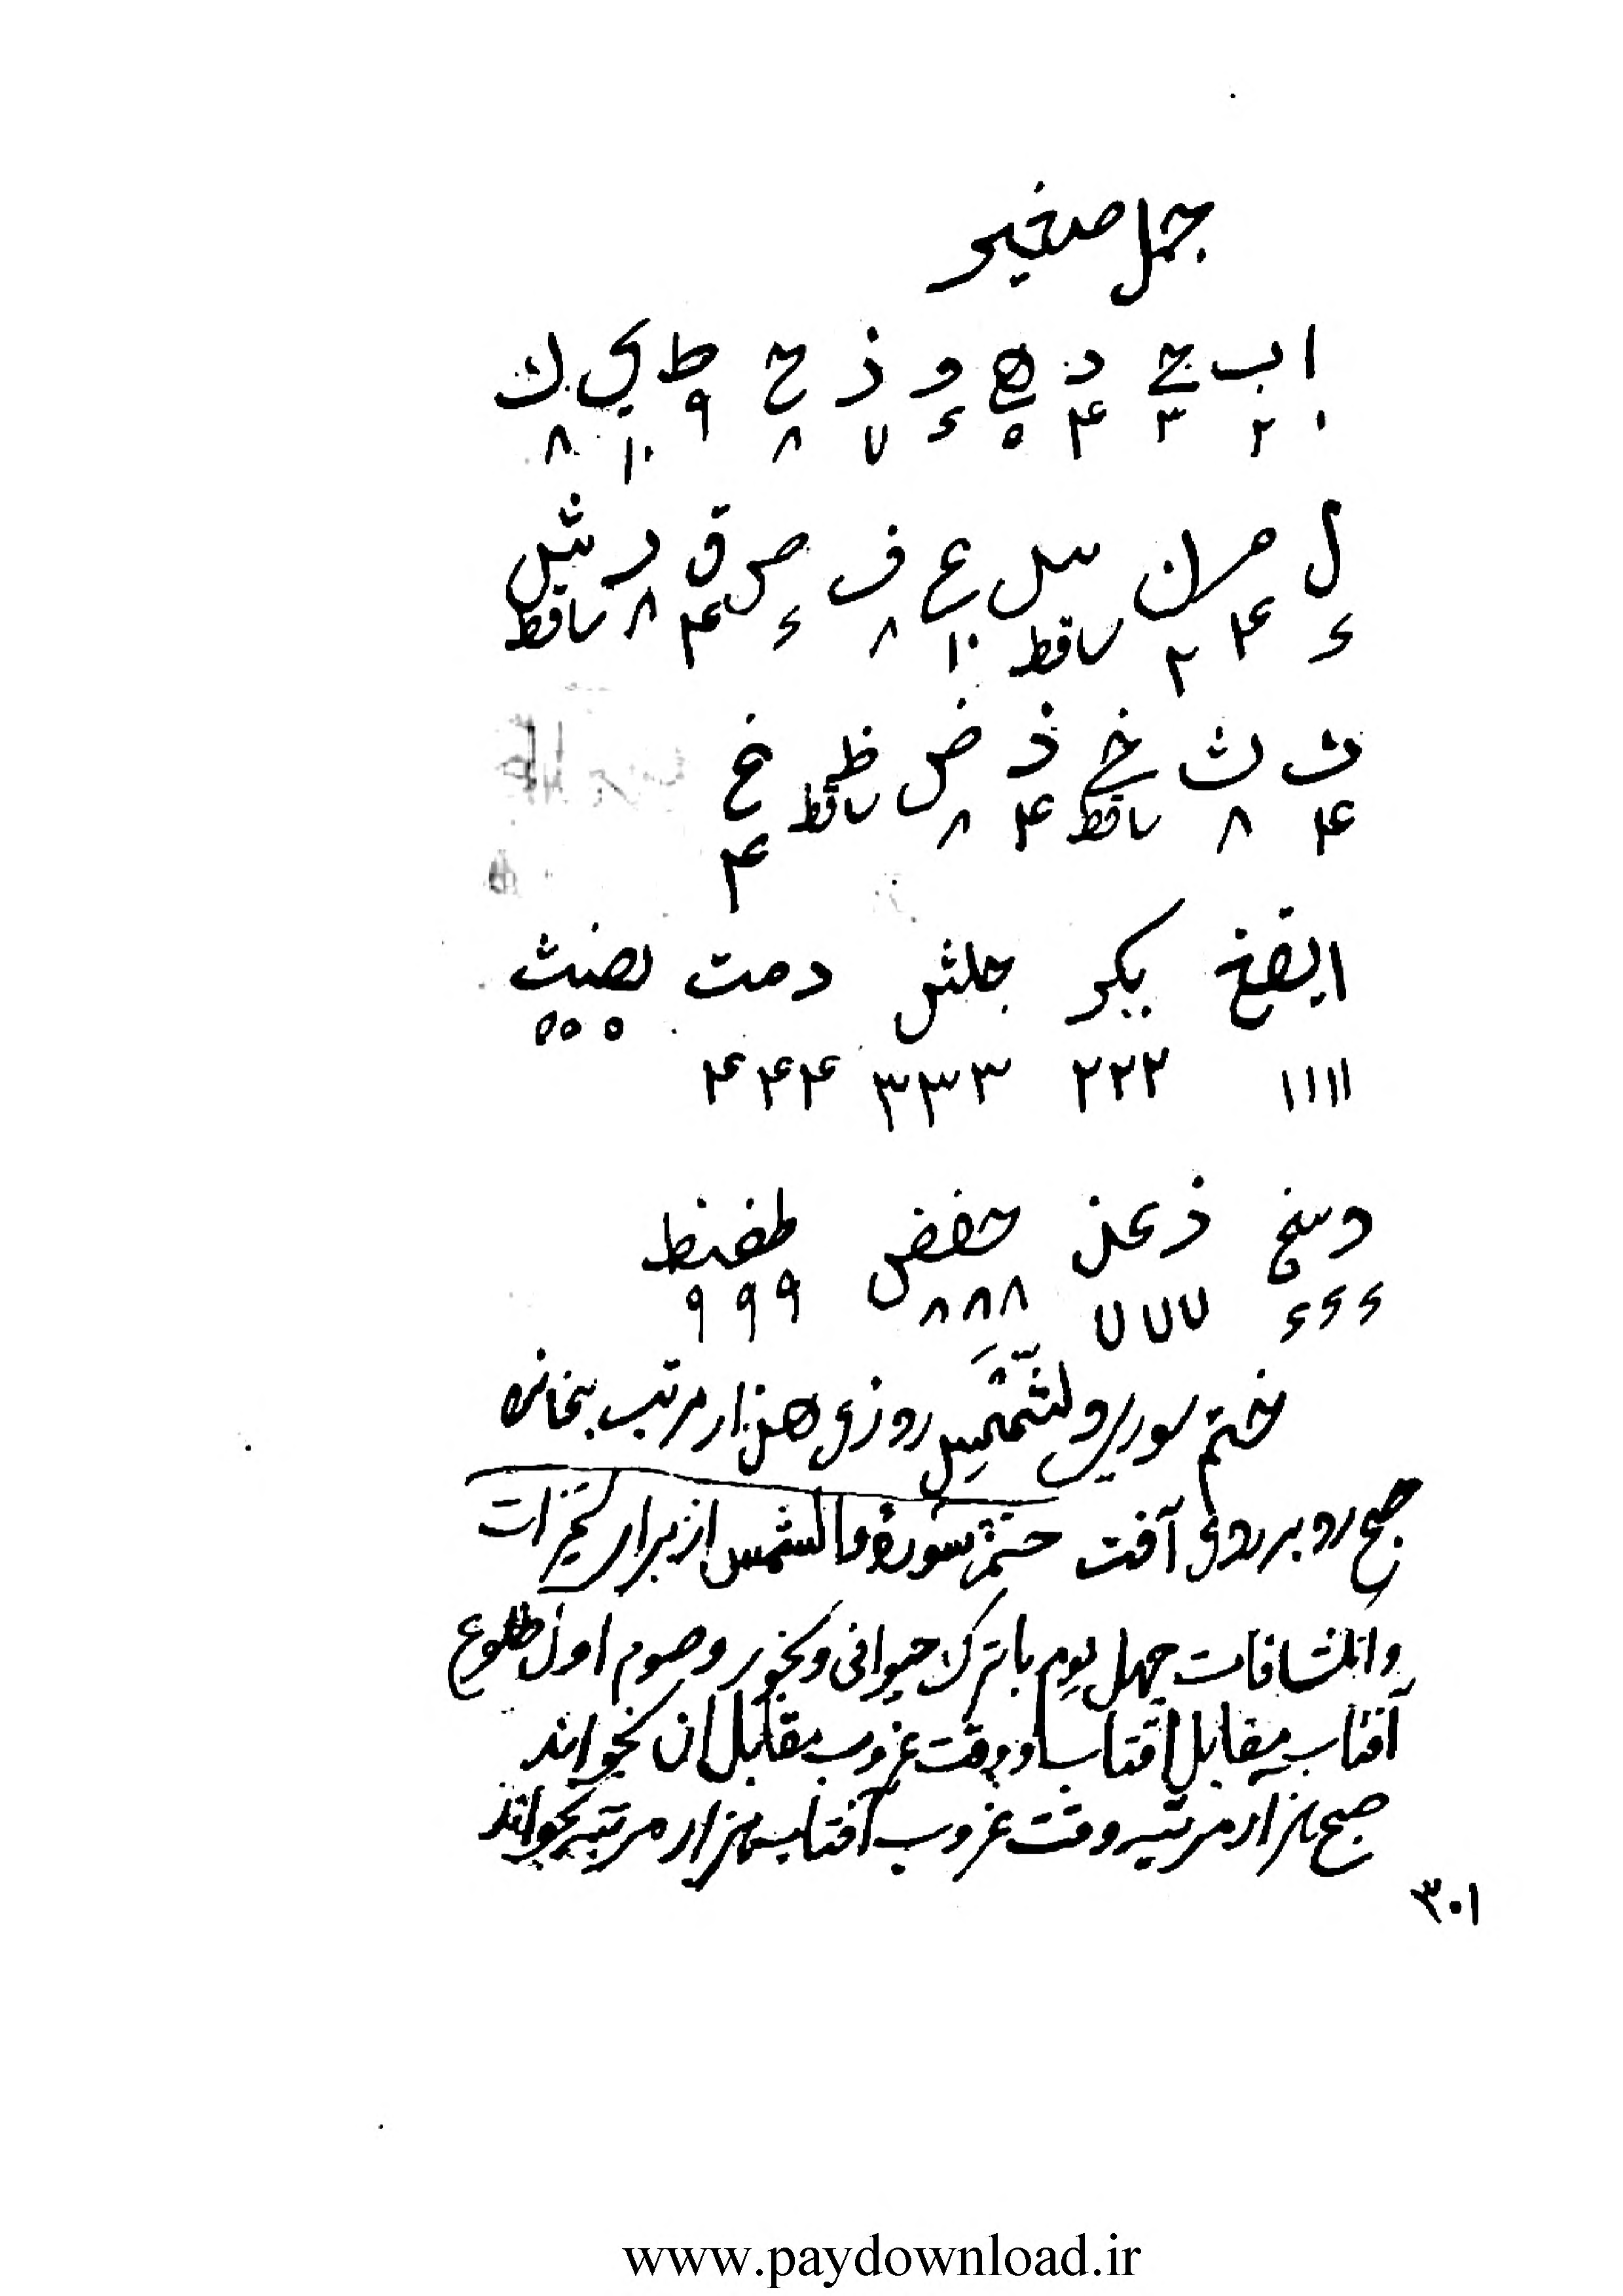 جمل صغیر
ا ب ج د ھ و ذ ح ط ی ك
۱ ۲ ۳ ۴ ۵ ۶ ۷ ۸ ۹ ۱۰ ۸
ل م ن س ع ف ص ق ر ش
۶ ۴ ۲ ساقط ۱۰ ۸ ۶ ۴ ۸ ساقط
ت ث خ ذ ض ظ غ
۴ ۸ ساقط ۴ ۸ ساقط ۴
ایقغ بکر جلش دمت
۵۵۵
۱۱۱۱ ۲۲۲ ۳۳۳ ۴۴۴
وسخ ذعن حفض
۶۶۶ ۷۷۷ ۸۸۸ ۹۹۹
ختم سوری ولشمس روزی هزار مرتب بخانی
صبح رو بر روی آفت ختم سوره والشمس از برای
وانکشافات چهل یوم با ترک حیوانی و بخور وصوم اول طلوع
آفتاب مقابل افتاب و وقت غروب مقابل ان بخواند
صبح هزار مرتبه وقت غروب آفتاب هزار مرتبه بخواند
۳۰۱
www.paydownload.ir